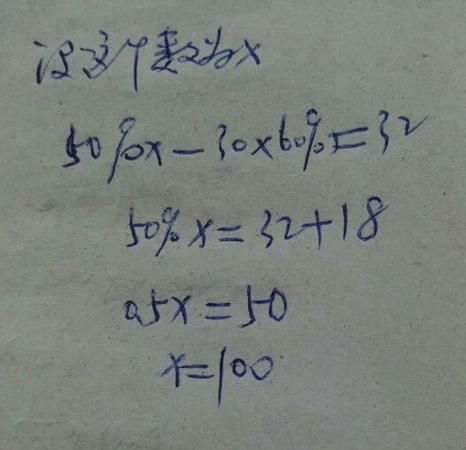 设这个数为x
50%x-30×60%=32
50%x=32+18
0.5x=50
x=100